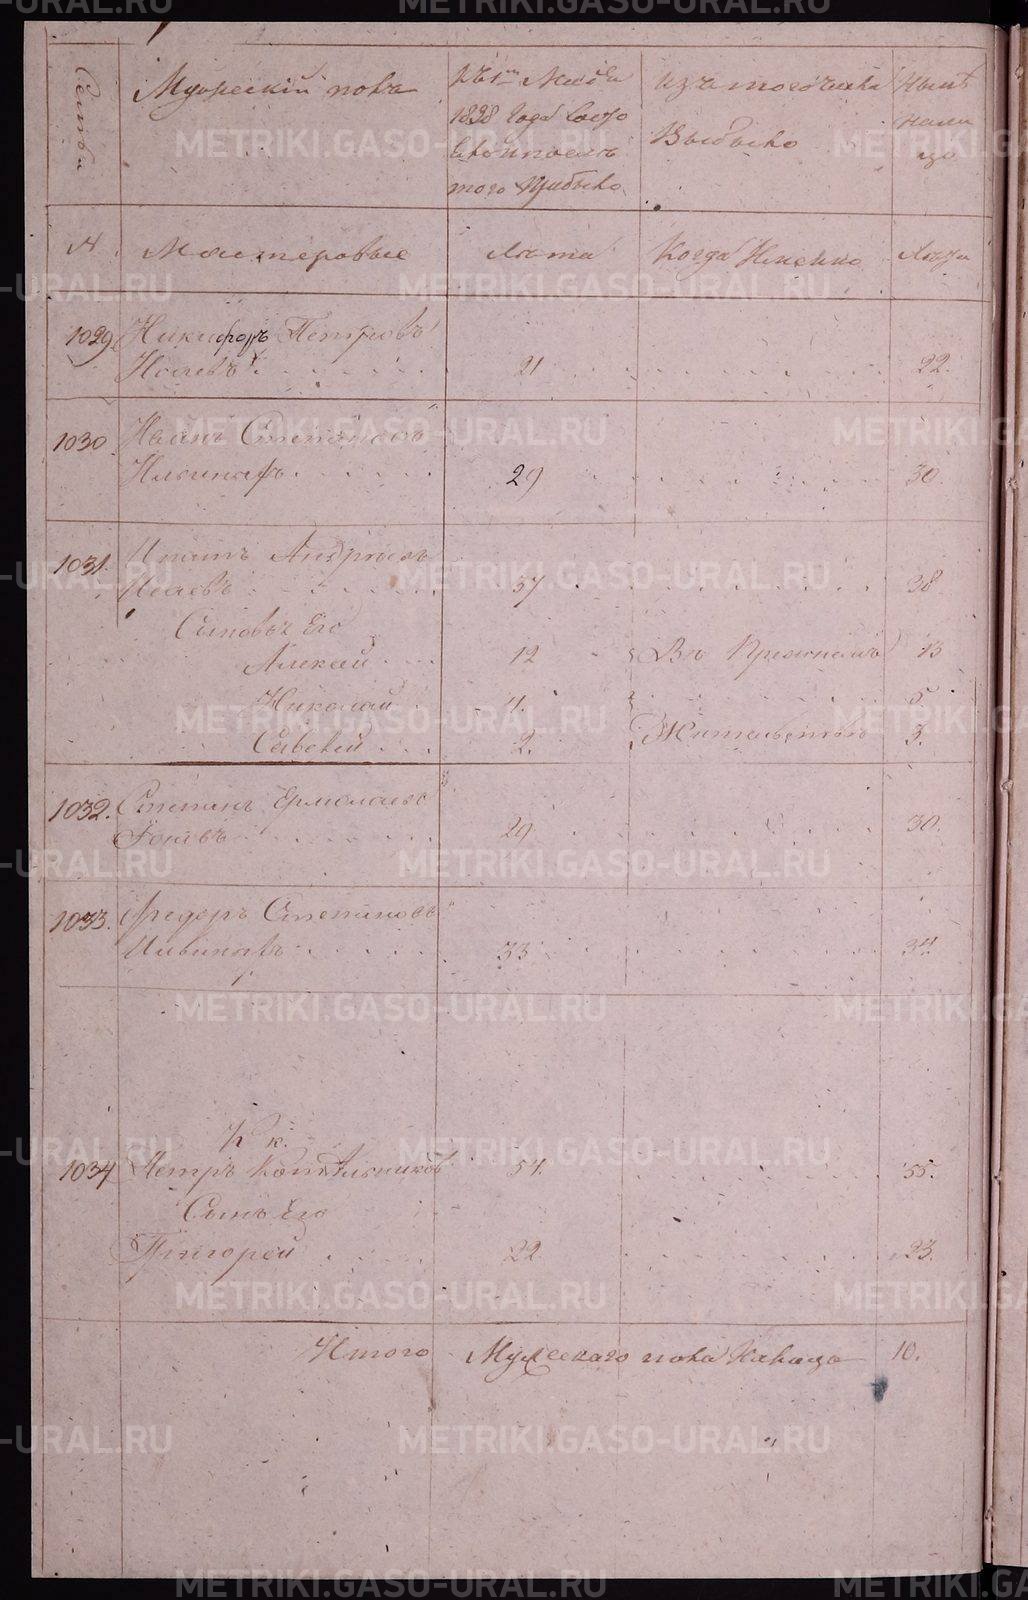 Семьи Мужескій полъ Къ 1му Маія Изъ того числа Нынѣ
1828 года Выбыло
того Прибыло
№ Мастеровые Лѣта Когда Именно Лѣта
1029. Никифоръ Петровъ
Исаевъ 21 22.
1030 Иванъ Степановъ
Ильиныхъ 29 30.
1031. Ипатъ Андреевъ
Исаевъ 37 38
Сыновья Его
Алексей 12 Въ Прежнемъ 13
Николай 4. 5
Савелий 2. Жительствѣ 3.
1032. Степанъ Ермолаевъ
29 30.
1033. Федоръ Степановъ
Ильиныхъ 33 34.
1034 Петръ Котельниковъ 54. 55.
Сынъ Его
Григорей 22 23.
Итого Мужескаго пола На лицо 10.
METRIKI.GASO-URAL.RU